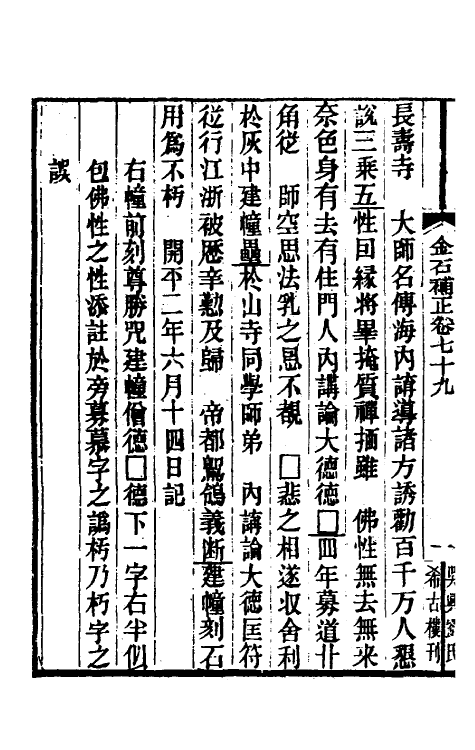 金石補正卷七十九
吳興劉氏
希古樓刊
長壽寺　大師名傳海內講導諸方誘勸百千万人懇
說三乘五性回緣將畢掩質禪掐雖　佛性無去無来
奈色身有去有住門人內講論大德德□四年募道廿
角從　師空思法乳之恩不覩　□悲之相遂収舍利
於灰中建幢壘於山寺同學師弟　內講論大德匡符
從行江浙被歷辛懃及歸　帝都鴛鴒義断建幢刻石
用爲不朽　開平二年六月十四日記
右幢前刻尊勝咒建幢僧德□德下一字右半似
包佛性之性添註於旁募慕字之譌杇乃朽字之
誤